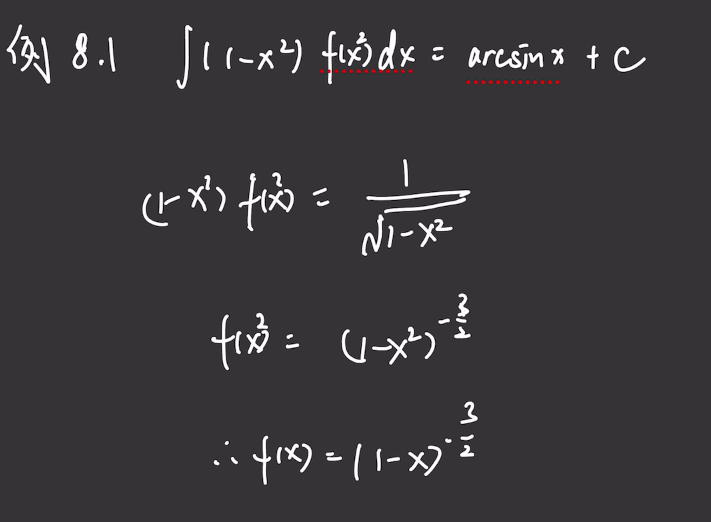 例 8.1 ∫(1-x²) f(x²)dx = arcsin x + C
(1-x²) f(x²) = 1/√(1-x²)
f(x²) = (1-x²)^(-3/2)
∴ f(x) = (1-x)^(-3/2)